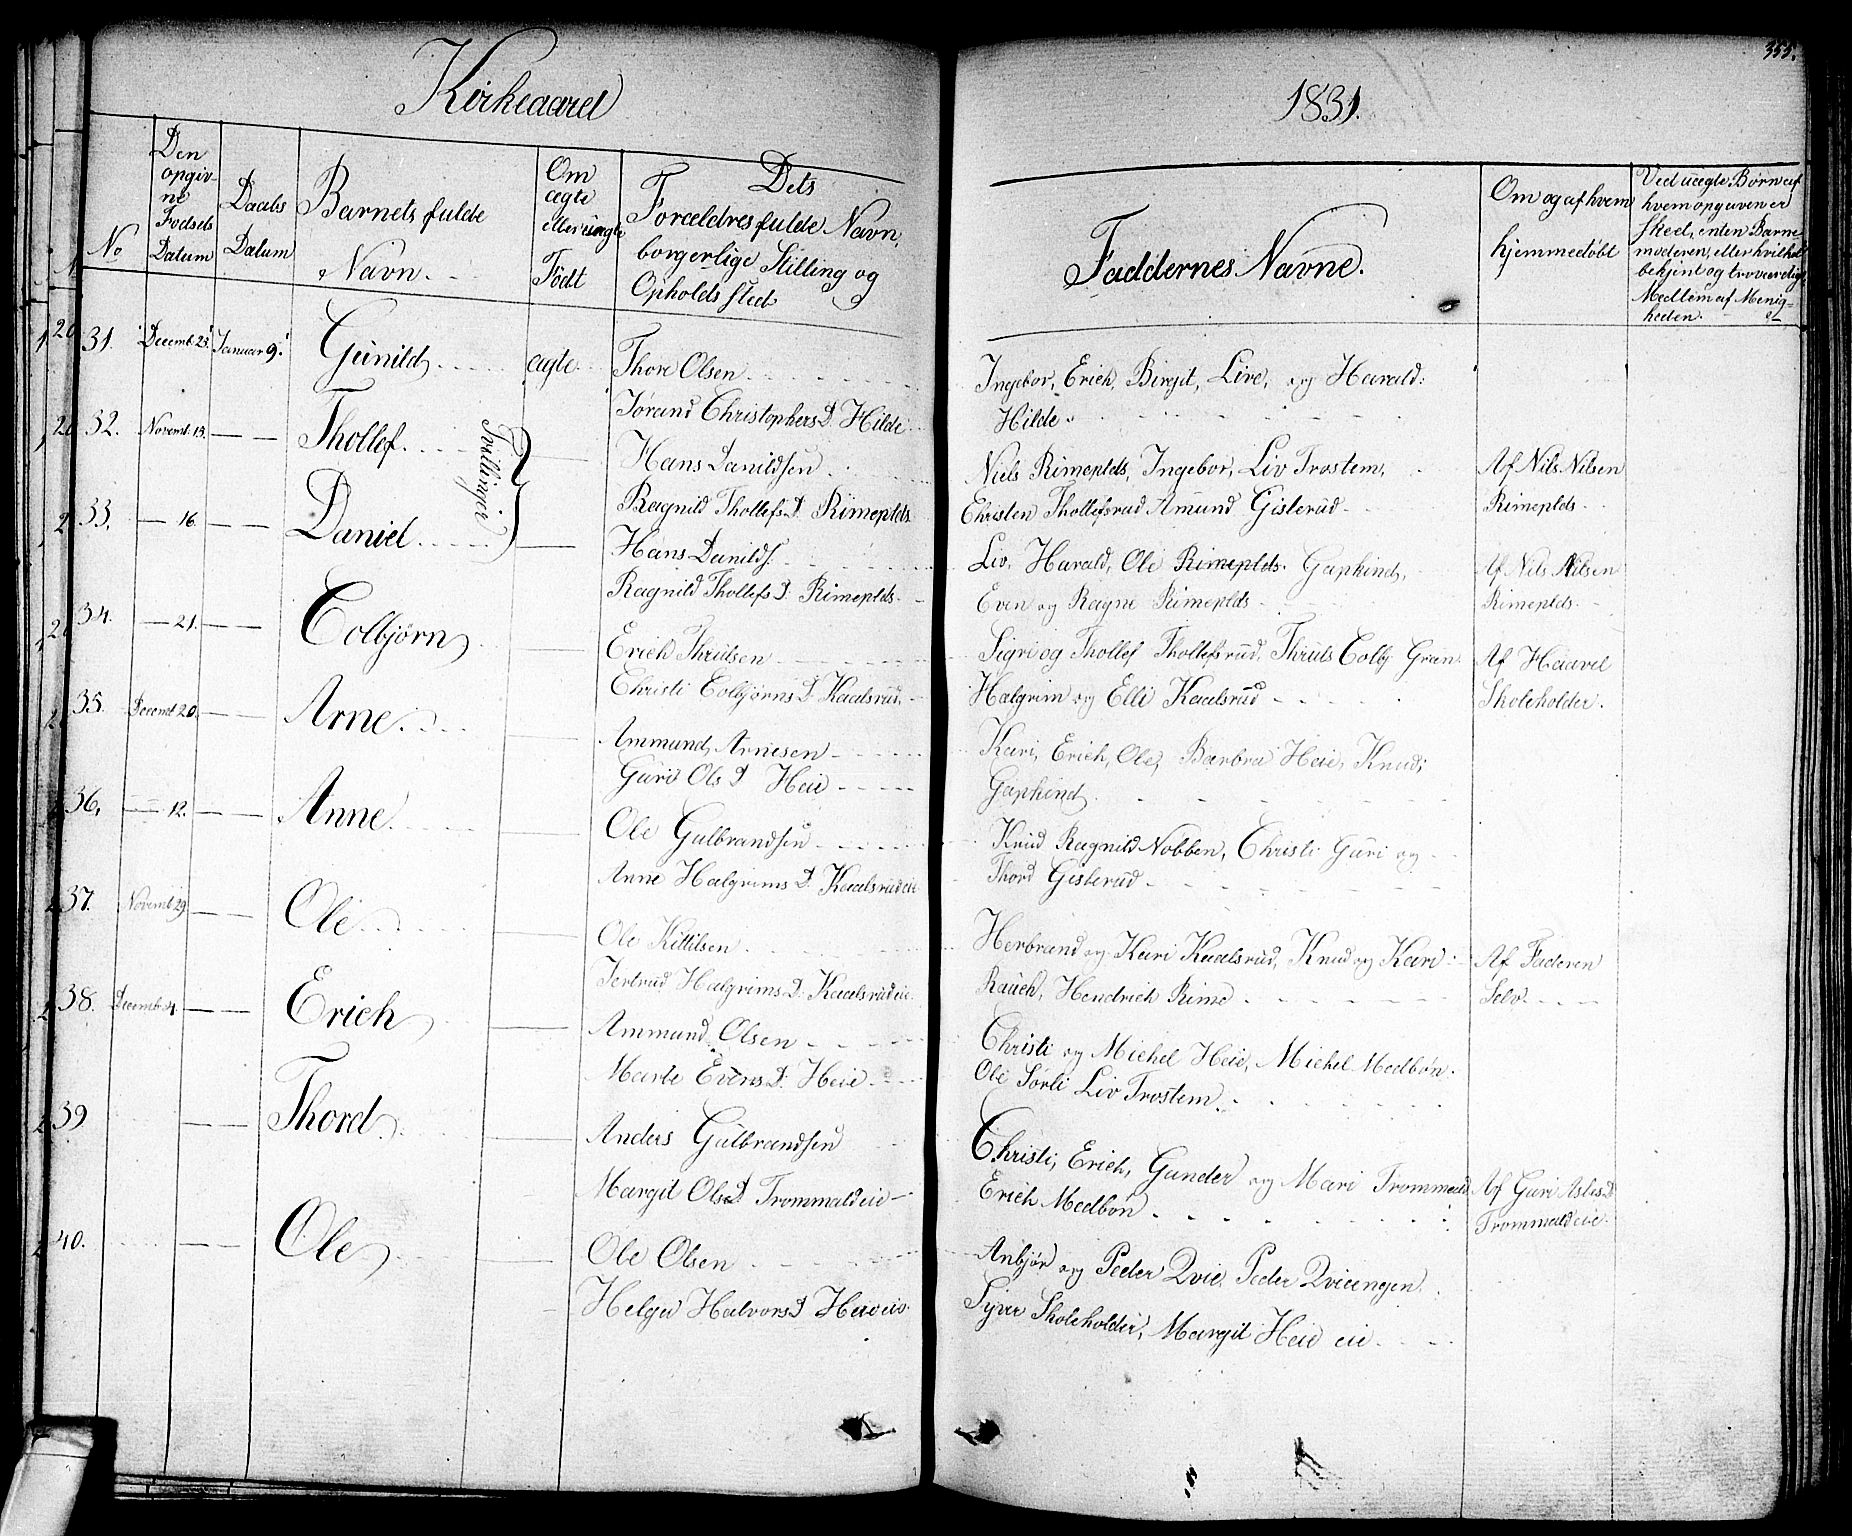 Kirkeaaret
1831.
355.
No
Den opgivne Fødsels Datum
Daabs Datum
Barnets fulde Navn.
Om ægte eller uægte Födt
Dets Forældres fulde Navn, borgerlige Stilling og Opholds sted
Faddernes Navne.
Om og af hvem hjemmedøbt
Ved uægte Børn af hvem opgaven er Skeed, enten Barnemoderen, eller hvilket bekjent og troværdigt Medlem af Menigheden.
31. Decemb. 23. Januar 9. Gunild ægte Thore Olsen
Jørand Christophers D. Hilde
Ingebor, Erich, Birgit, Live, og Harald:
Hilde
32. Novemb. 13. Thollef. Tvillinger Hans Danildsen
Ragnild Thollefs D. Rimeplds
Niels Rimeplds, Ingebor, Liv Trostem, Af Nils Nilsen
Christen Thollefsrud Amund Gisterud Rimeplds
33. 16. Daniel Hans Danilds.
Ragnild Thollefs D. Rimeplds
Liv, Harald, Ole Rimeplds. Gaptind, Af Nils Nilsen
Even og Ragne Rimeplds Rimeplds
34. 21. Colbjørn Erich Thrulsen
Christi Colbjørns D. Kaalsrud
Sigri og Thollef Thollefsrud, Thruls Colbj. Grøn Af Haavel
Halgrim og Elli Kaalsrud Skoleholder.
35. Decemb. 20. Arne. Ammund Arnesen
Guri Ols D Heie
Kari, Erich, Ole, Barbra Heie, Knud;
Gaptind
36. 12. Anne. Ole Gulbrandsen
Anne Halgrims D. Kaalsrudeie
Knud Ragnild Nobben, Christi Guri og
Thord Gisterud
37. Novemb. 29. Ole Ole Kittilsen
Jertrud Halgrims D. Kaalsrudeie
Herbrand og Kari Kaalsrud, Knud og Kari Af Faderen
Rauch, Hendrich Rime Selv
38. Decemb. 4. Erich Ammund Olsen
Marte Evens D. Heie
Christi og Michel Heie, Michel Medbøn.
Ole Sørli Liv Trostem
39 Thord. Anders Gulbrandsen
Margit Ols D Trommaldeie
Christi, Erich, Gunder og Mari Trommald Af Guri Asles D
Erich Medbøn Trommaldeie.
40. Ole Ole Olsen
Helga Halvors D Heieeie
Anbjør og Peder Qvie, Peder Qvieengen,
Syver Skoleholder, Margit Heie eie